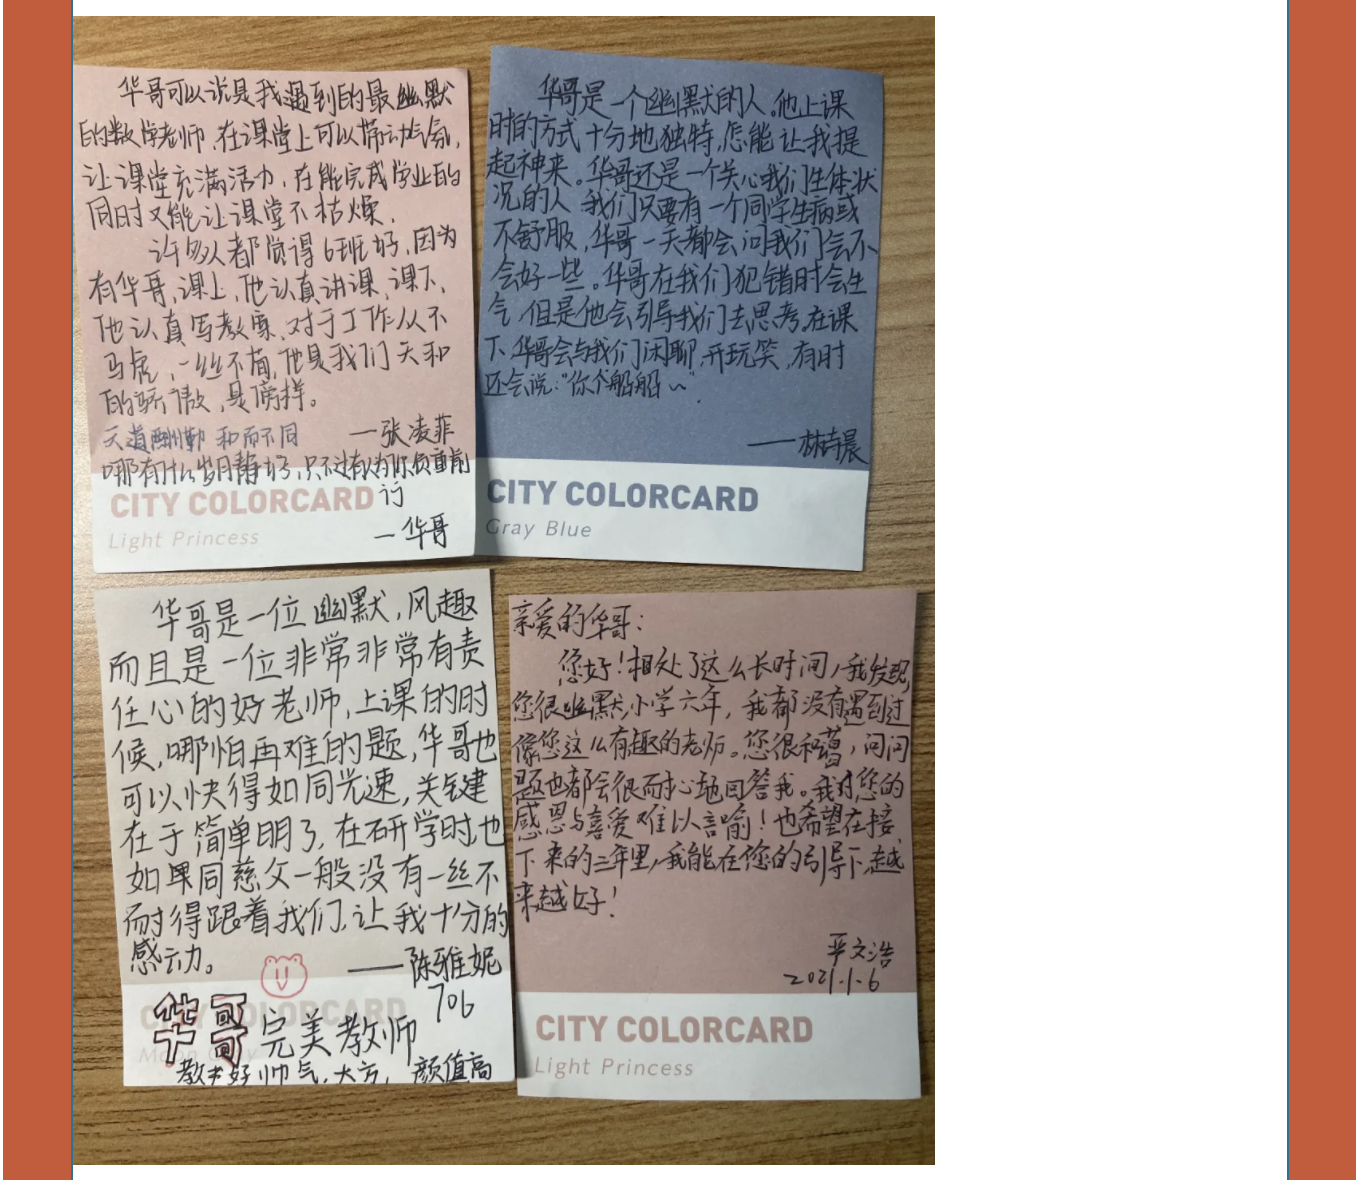 华哥可以说是我遇到的最幽默
的数学老师,在课堂上可以带动气氛,
让课堂充满活力,在能完成学业的
同时又能让课堂不枯燥,
许多人都觉得6班好,因为
有华哥,课上,他认真讲课,课下,
他认真写教案,对于工作从不
马虎,一丝不苟,他是我们天和
的骄傲,是榜样。
—张凌菲
天道酬勤 和而不同
哪有什么岁月静好,只不过有人为你负重前
行
—华哥
CITY COLORCARD
Light Princess
华哥是一个幽默的人。他上课
时的方式十分地独特,总能让我提
起神来。华哥还是一个关心我们生体状
况的人 我们只要有一个同学生病或
不舒服,华哥一天都会问我们会不
会好一些。华哥在我们犯错时会生
气,但是他会引导我们去思考,在课
下,华哥会与我们闲聊,开玩笑,有时
还会说:“你个船船~”.
——林诗晨
CITY COLORCARD
Gray Blue
华哥是一位幽默,风趣
而且是一位非常非常有责
任心的好老师,上课的时
候,哪怕再难的题,华哥也
可以快得如同光速,关键
在于简单明了,在研学时,也
如果同慈父一般没有一丝不
耐得跟着我们,让我十分的
感动。
——陈雅妮
706
华哥 完美教师
教书好 帅气,大方, 颜值高
COLORCARD
亲爱的华哥:
您好!相处了这么长时间,我发现,
您很幽默,小学六年,我都没有遇到过
像您这么有趣的老师。您很和蔼,问问
题也都会很耐心地回答我。我对您的
感恩与喜爱难以言喻!也希望在接
下来的三年里,我能在您的引导下,越
来越好!
严文浩
2021.1.6
CITY COLORCARD
Light Princess